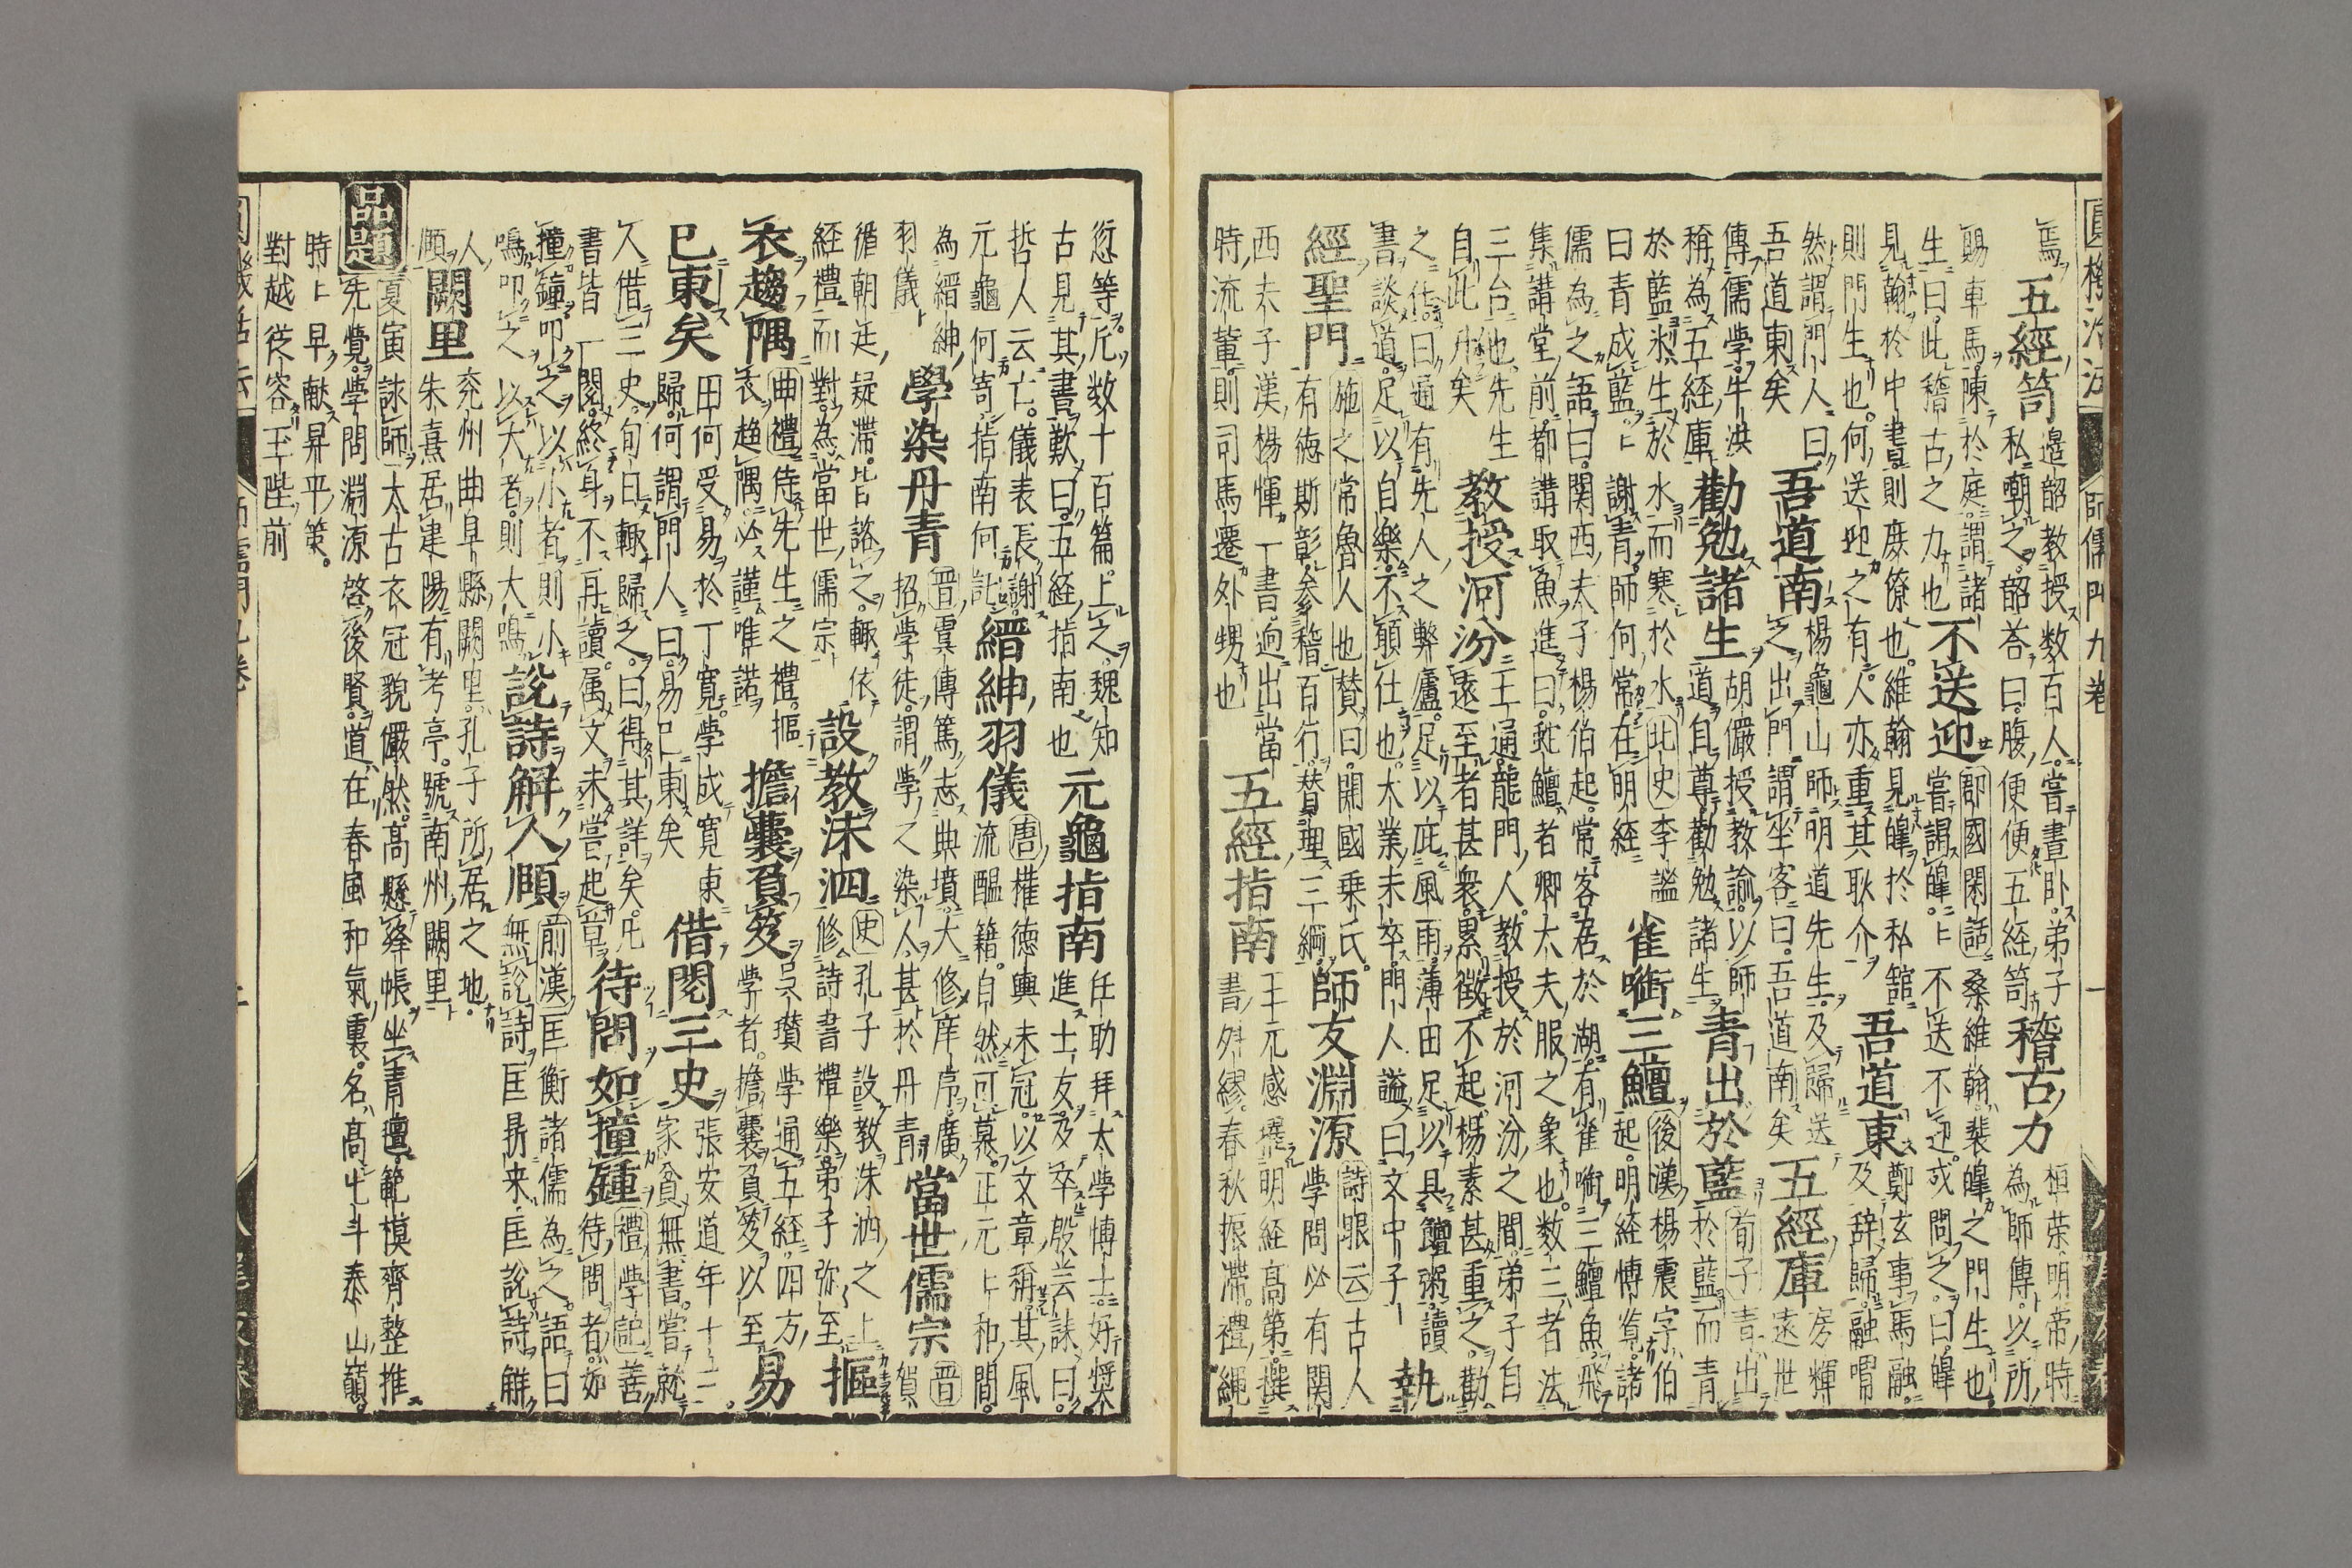 圓機活法 師儒門九卷 一
焉
五經笥
邊韶教授数百人嘗晝卧弟子
私嘲之韶荅曰腹便便五経笥
稽古力
桓荣明帝時
為師傅以所
賜車馬陳於庭謂諸
生曰此稽古之力也
不送迎
郡國閑話桑維翰裴皥之門生也
嘗謁皥上不送不迎或問之曰皥
見翰於中書則庶僚也維翰見皥於私舘
則門生也何送迎之有人亦重其耿介
吾道東
鄭玄事馬融
及辞歸融喟
然謂門人曰
吾道東矣
吾道南
楊龜山師明道先生及歸送
之出門謂坐客曰吾道南矣
五經庫
房輝
遠世
傳儒學牛洪
稱為五経庫
勸勉諸生
胡儼授教諭以師
道自尊勸勉諸生
青出於藍
荀子青出
於藍而青
於藍氷生於水而寒於水北史李謐
曰青成藍上謝青師何常在明経
雀啣三鱣
後漢楊震字伯
起明経愽覧諸
儒為之語曰関西夫子楊伯起常客居於湖有雀啣三鱣魚飛
集講堂前都講取魚進曰虵鱣者卿大夫服之象也数三者法
三台也先生
自此升矣
教授河汾
王通龍門人教授於河汾之間弟子自
遠至者甚衆累徴不起楊素甚重之勸
之仕曰通有先人之弊廬足以庇風雨薄田足以具饘粥讀
書談道足以自樂不願仕也大業末卒門人謚曰文中子
執
經聖門
施之常魯人也賛曰開國乗氏
有徳斯彰参稽百行替理三綱
師友淵源
詩眼云古人
學問必有関
西夫子漢楊惲一書迥出當
時流輩則司馬遷外甥也
五經指南
王元感遷明経高第撰
書糾繆春秋振滞禮繩
愆等凢数十百篇上之魏知
古見其書歎曰五経指南也
元龜指南
任助拜太學愽士好奨
進士友及卒殷芸誄曰
哲人云亡儀表長謝
元龜何寄指南何託
縉紳羽儀
唐權徳輿未冠以文章稱其風
流醞籍自然可慕正元上和間
為縉紳
羽儀
學染丹青
晋虞傳篤志典墳大修庠序廣
招學徒謂學之染人甚於丹青
當世儒宗
晋賀
循朝廷疑滞皆諮之輙依
経禮而對為當世儒宗
設教洙泗
史孔子設教洙泗之上
修詩書禮樂弟子弥至
摳
衣趨隅
曲禮侍先生之禮摳
衣趋隅必謹唯諾
擔囊負笈
呉瓚學通五経四方
學者擔囊負笈以至
易
已東矣
田何受易於丁寬學成寛東
歸何謂門人曰易已東矣
借閲三史
張安道年十三
家貧無書嘗就
人借三史旬日輙歸之曰得其詳矣凢
書皆一閲終身不再讀属文未嘗起草
待問如撞鍾
禮學記善
待問者如
撞鐘叩之以小者則小
鳴叩之以大者則大鳴
説詩解人頤
前漢匡衡諸儒為之語曰
無説詩匡鼎来匡説詩解
人
頤
闕里
兖州曲阜縣闕里孔子所居之地
朱熹居建陽有考亭號南州闕里
品題
夏寅詠師太古衣冠貌儼然高懸絳帳坐青氊範模齊整推
先覺學問淵源啓後賢道在春風和氣裏名高北斗泰山巓
時上早献昇平策
對越從容玉陛前
圓機活法 師儒門九卷